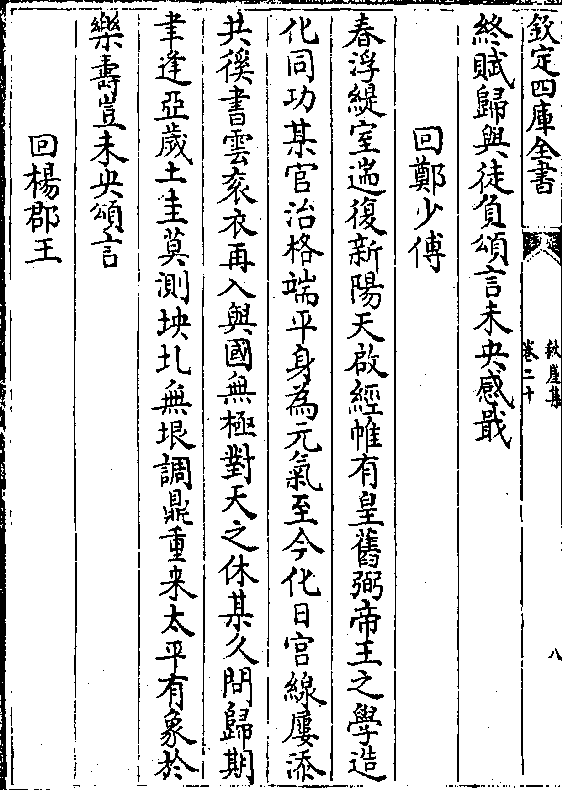 欽定四庫全書
秋崖集
卷二十
八
終賦歸與徒負頌言未央感戢
回鄭少傅
春浮緹室遄復新陽天啟經帷有皇舊弼帝王之學造
化同功某官治格端平身為元氣至今化日宫線屢添
共徯書雲衮衣再入與國無極對天之休某久問歸期
聿逢亞歲土圭莫測坱圠無垠調鼎重来太平有象於
樂壽豈未央頌言
回楊郡王